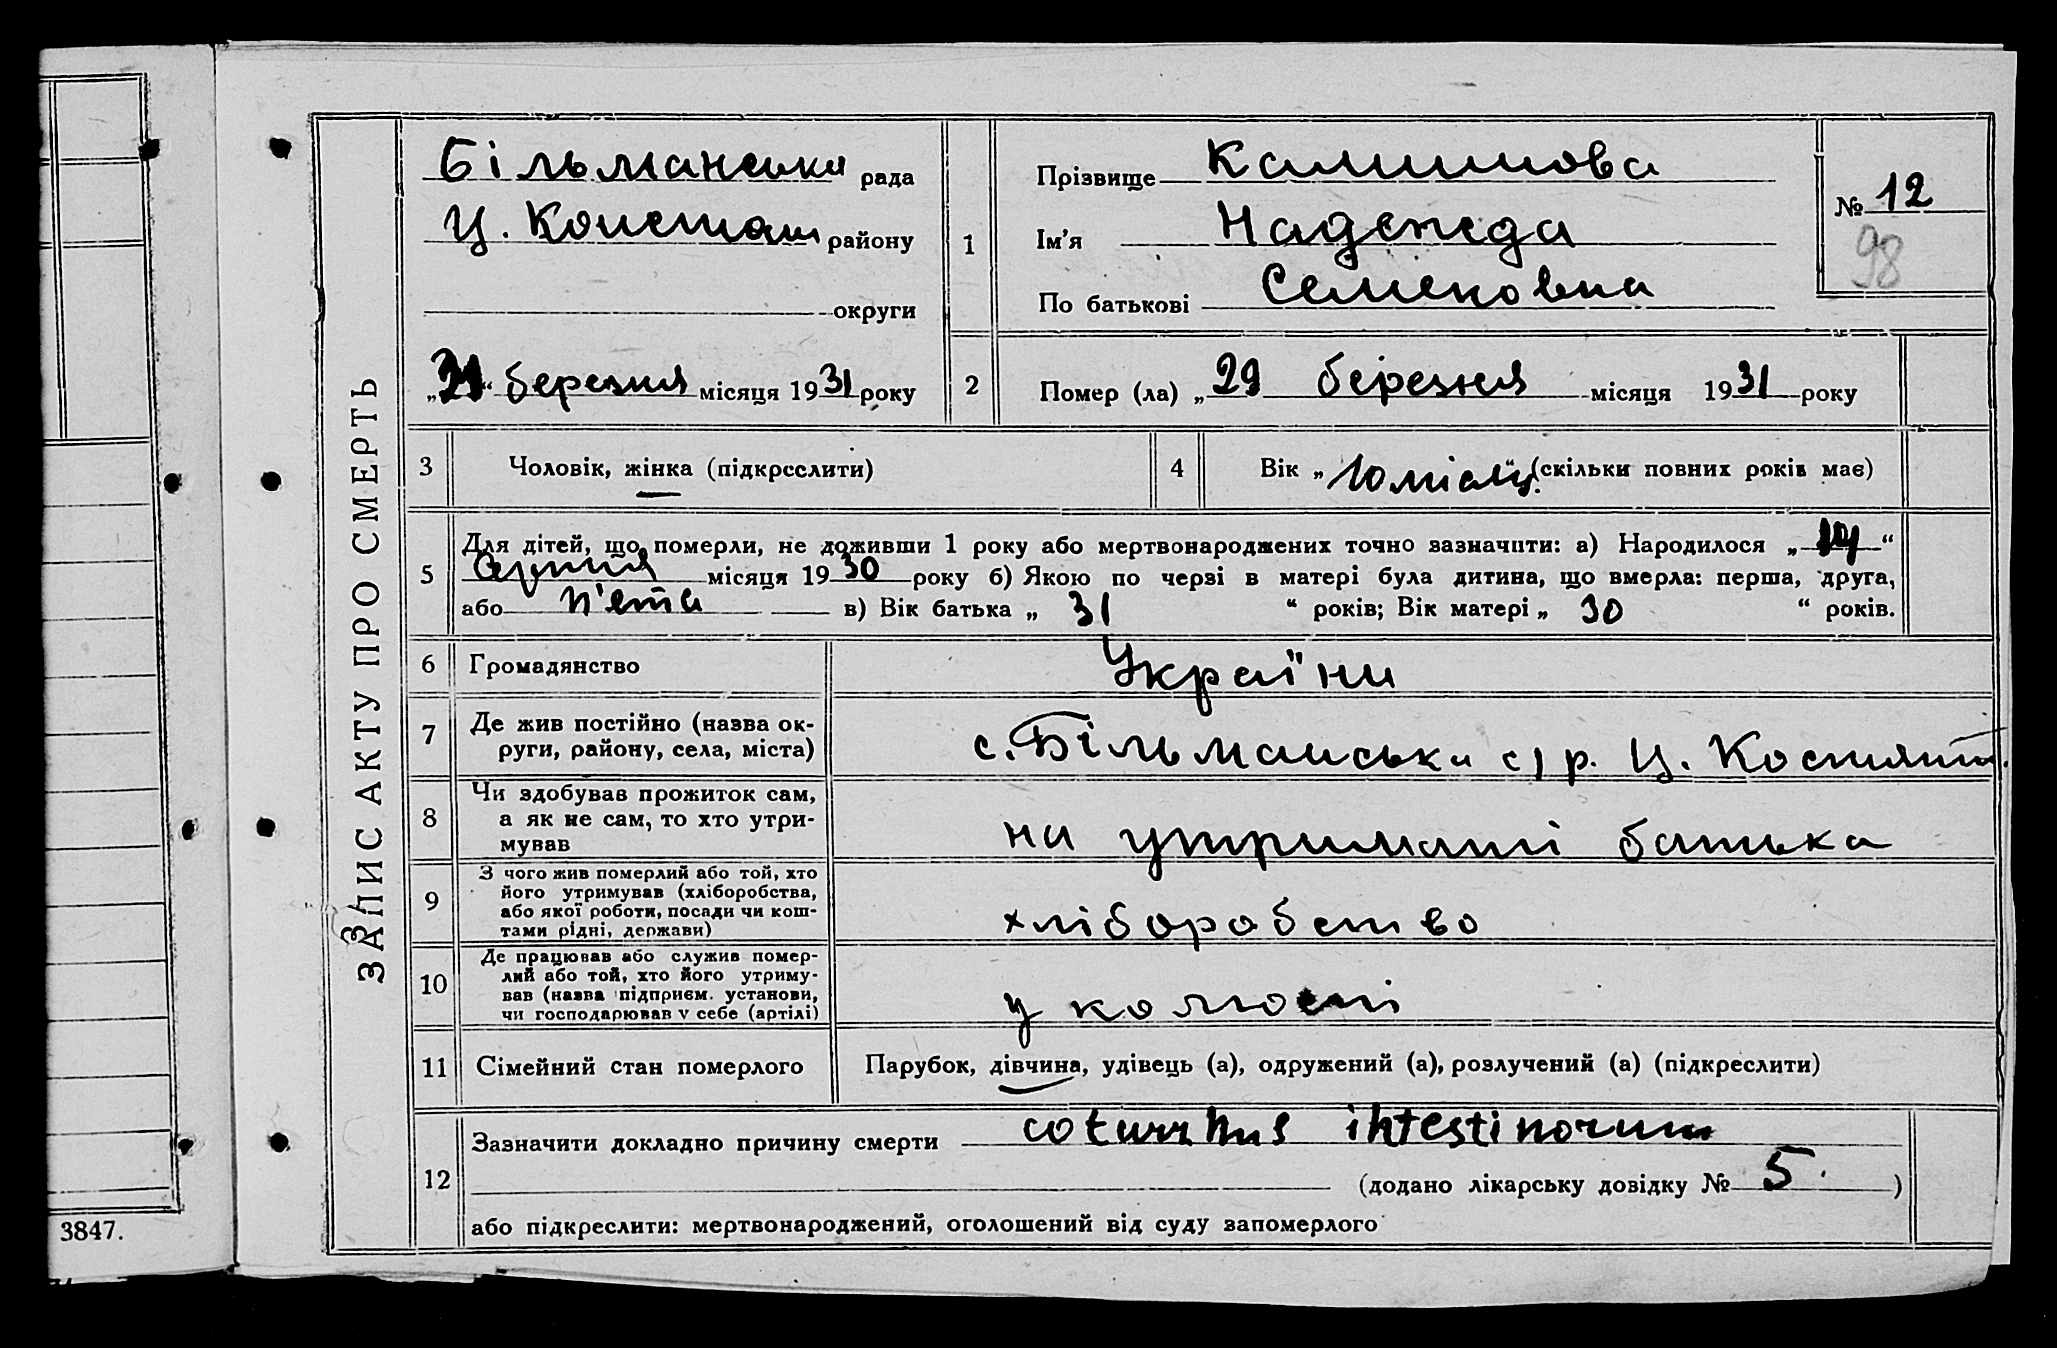 ЗАПИС АКТУ ПРО СМЕРТЬ
Більманська рада
Ц. Констан району
округи
„31“ березня місяця 1931 року
1
Прізвище Калишова
Ім'я Надежда
По батькові Семеновна
№ 12
98
2
Помер (ла) „29 березня місяця 1931 року
3 Чоловік, жінка (підкреслити)
4 Вік „10 місяц.“ (скільки повних років має)
5 Для дітей, що померли, не доживши 1 року або мертвонароджених точно зазначити: а) Народилося „ “
серпня місяця 1930 року б) Якою по черзі в матері була дитина, що вмерла: перша, друга,
або п'ята в) Вік батька „ 31 “ років; Вік матері „ 30 “ років.
6 Громадянство України
7 Де жив постійно (назва округи, району, села, міста) с. Більманська с/р. Ц. Костянт.
8 Чи здобував прожиток сам,
а як не сам, то хто утримував
на утриманні батька
9 З чого жив померлий або той, хто
його утримував (хліборобства,
або якої роботи, посади чи коштами рідні, держави)
хліборобство
10 Де працював або служив померлий або той, хто його утримував (назва підприєм. установи,
чи господарював у себе (артілі)
у колгоспі
11 Сімейний стан померлого Парубок, дівчина, удівець (а), одружений (а), розлучений (а) (підкреслити)
12 Зазначити докладно причину смерти intestinorum
(додано лікарську довідку № 5 )
або підкреслити: мертвонароджений, оголошений від суду запомерлого
3847.